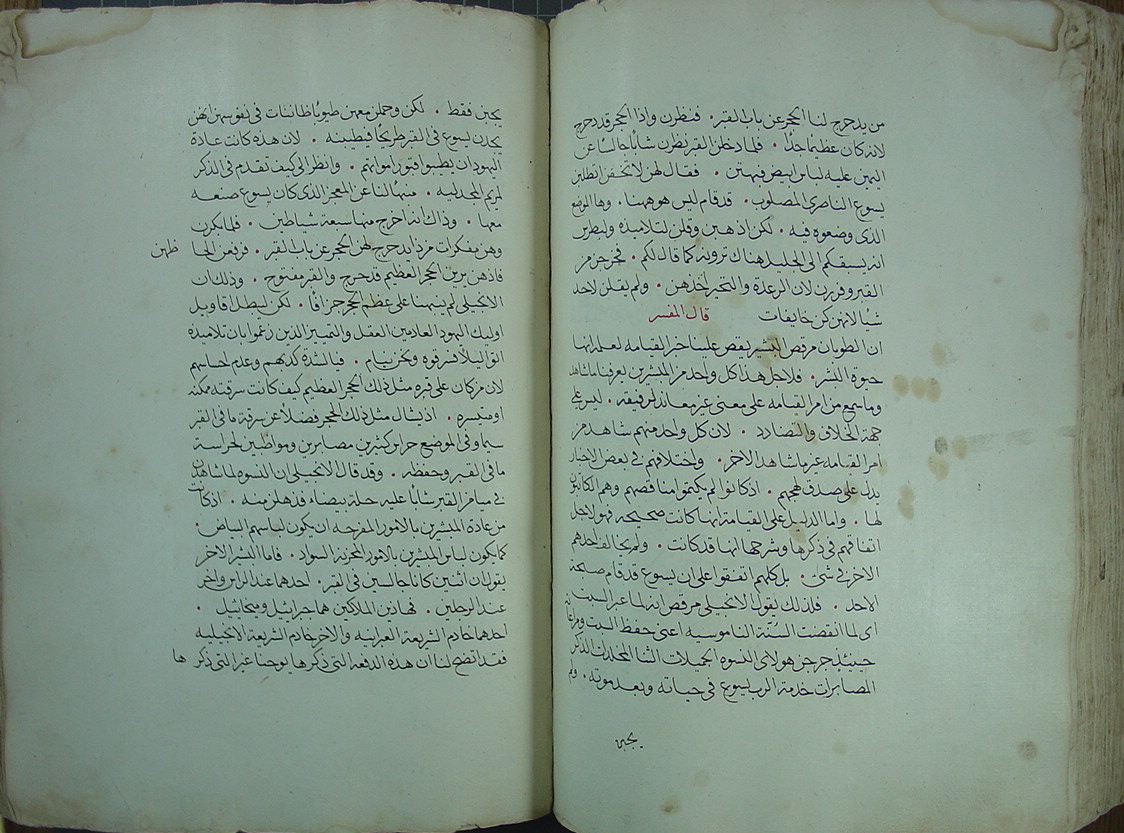 من يدحرج لنا الحجر عن باب القبر • فنظرن واذا الحجر قد دحرج
لانه كان عظيما جدًا • فلما دخلن القبر نظرن شابًا جالسًا عن
اليمين عليه لباس ابيض فبهتن • فقال لهن لا تخفن اتطلبن
يسوع الناصرى المصلوب • قد قام ليس هو ههنا • وها الموضع
الذى وضعوه فيه • لكن اذهبن وقلن لتلاميذه ولبطرس
انه يسبقكم الى الجليل هناك ترونه كما قال لكم • فخرجن من
القبر وفررن لان الرعدة والتحير اخذهن • ولم يقلن لاحد
شيا لانهن كن خايفات قال المفسر
ان الطوبان مرقص البشير يقص علينا خبر القيامه لعلمه انها
حيوة البشر • فلاجل هذا كل واحد من المبشرين يعرفنا ما شاهد
وما سمع من امر القيامه على معنى غير معاند لرفيقه • ليس على
جهة الخلاف والتضادد • لان كل واحد منهم شاهد من
امر القيامه غير ما شاهد الاخر • واختلافهم فى بعض الاخبار
يدل على صدق لهجهم • اذ كانوا لم يكتموا مناقضهم وهم الكاتبون
لها • واما الدليل على القيامة انها كانت صحيحه فهو لاجل
اتفاقهم فى ذكرها وشرحها انها قد كانت • ولم يخالف احدهم
الاخر فى شئ • بل كلهم اتفقوا على ان يسوع قد قام صبيحة
الاحد • فلذلك يقول الانجيلى مرقص انه لما عبر السبت
اى لما انقضت السُنّة الناموسيه اعنى حفظ السبت
حينيذ خرجن هولاى النسوه الجميلات الثنا المخلدات الذكر
المصابرات خدمة الرب يسوع فى حياته وبعد موته • ولم
يجبن
يجبن فقط • لكن وحملن معهن طيوبًا ظانات فى نفوسهن انهن
يجدن يسوع فى القبر طريحا فيطيبنه • لان هذه كانت عادة
اليهود ان يطيبوا قبور امواتهم • وانظر الى كيف تقدم فى الذكر
لمريم المجدليه • منبهًا لنا عن المعجز الذى كان يسوع صنعه
معها • وذاك انه اخرج منها سبعة شياطين • فلما بكرن
وهن مفكرات من ذا يدحرج لهن الحجر عن باب القبر • فرفعن الحاظهن
فاذ هن يرين الحجر العظيم قد دحرج والقبر مفتوح • وذلك ان
الانجيلى لم ينبهنا على عظم الحجر جزافًا • لكن ليبطل اقاويل
اوليك اليهود العادمين العقل والتمييز الذين زعموا بان تلاميذه
اتوا ليلًا فسرقوه ونحن نيام • فيا لشدة كذبهم وعدم احساسهم
لان من كان على قبره مثل ذلك الحجر العظيم كيف كانت سرقته ممكنه
او متيسره • اذ يشال مثل ذلك الحجر فضلًا عن سرقة ما فى القبر
سيما وفى الموضع حراس كثيرين مصابرين ومواظبين لحراسة
ما فى القبر وحفظه • وقد قال الانجيلى ان النسوه لما شاهدن
فى ميامن القبر شابًا عليه حلة بيضاء فذهلن منه • اذ كانت
من عادة المبشرين بالامور المفرحه ان يكون لباسهم البياض •
كما يكون لباس المبشرين بالامور المحزنة السواد • فاما البشير الاخر
يقول ان اثنين كانا جالسين فى القبر • احدهما عند الراس واخر
عند الرجلين • فهاذين الملاكين هما جبراييل وميخاييل •
احدهما خادم الشريعة العبرانيه والاخر خادم الشريعة الانجيليه
فقد اتضح لنا ان هذه الدفعه التى ذكرها يوحنا غير التى ذكرها